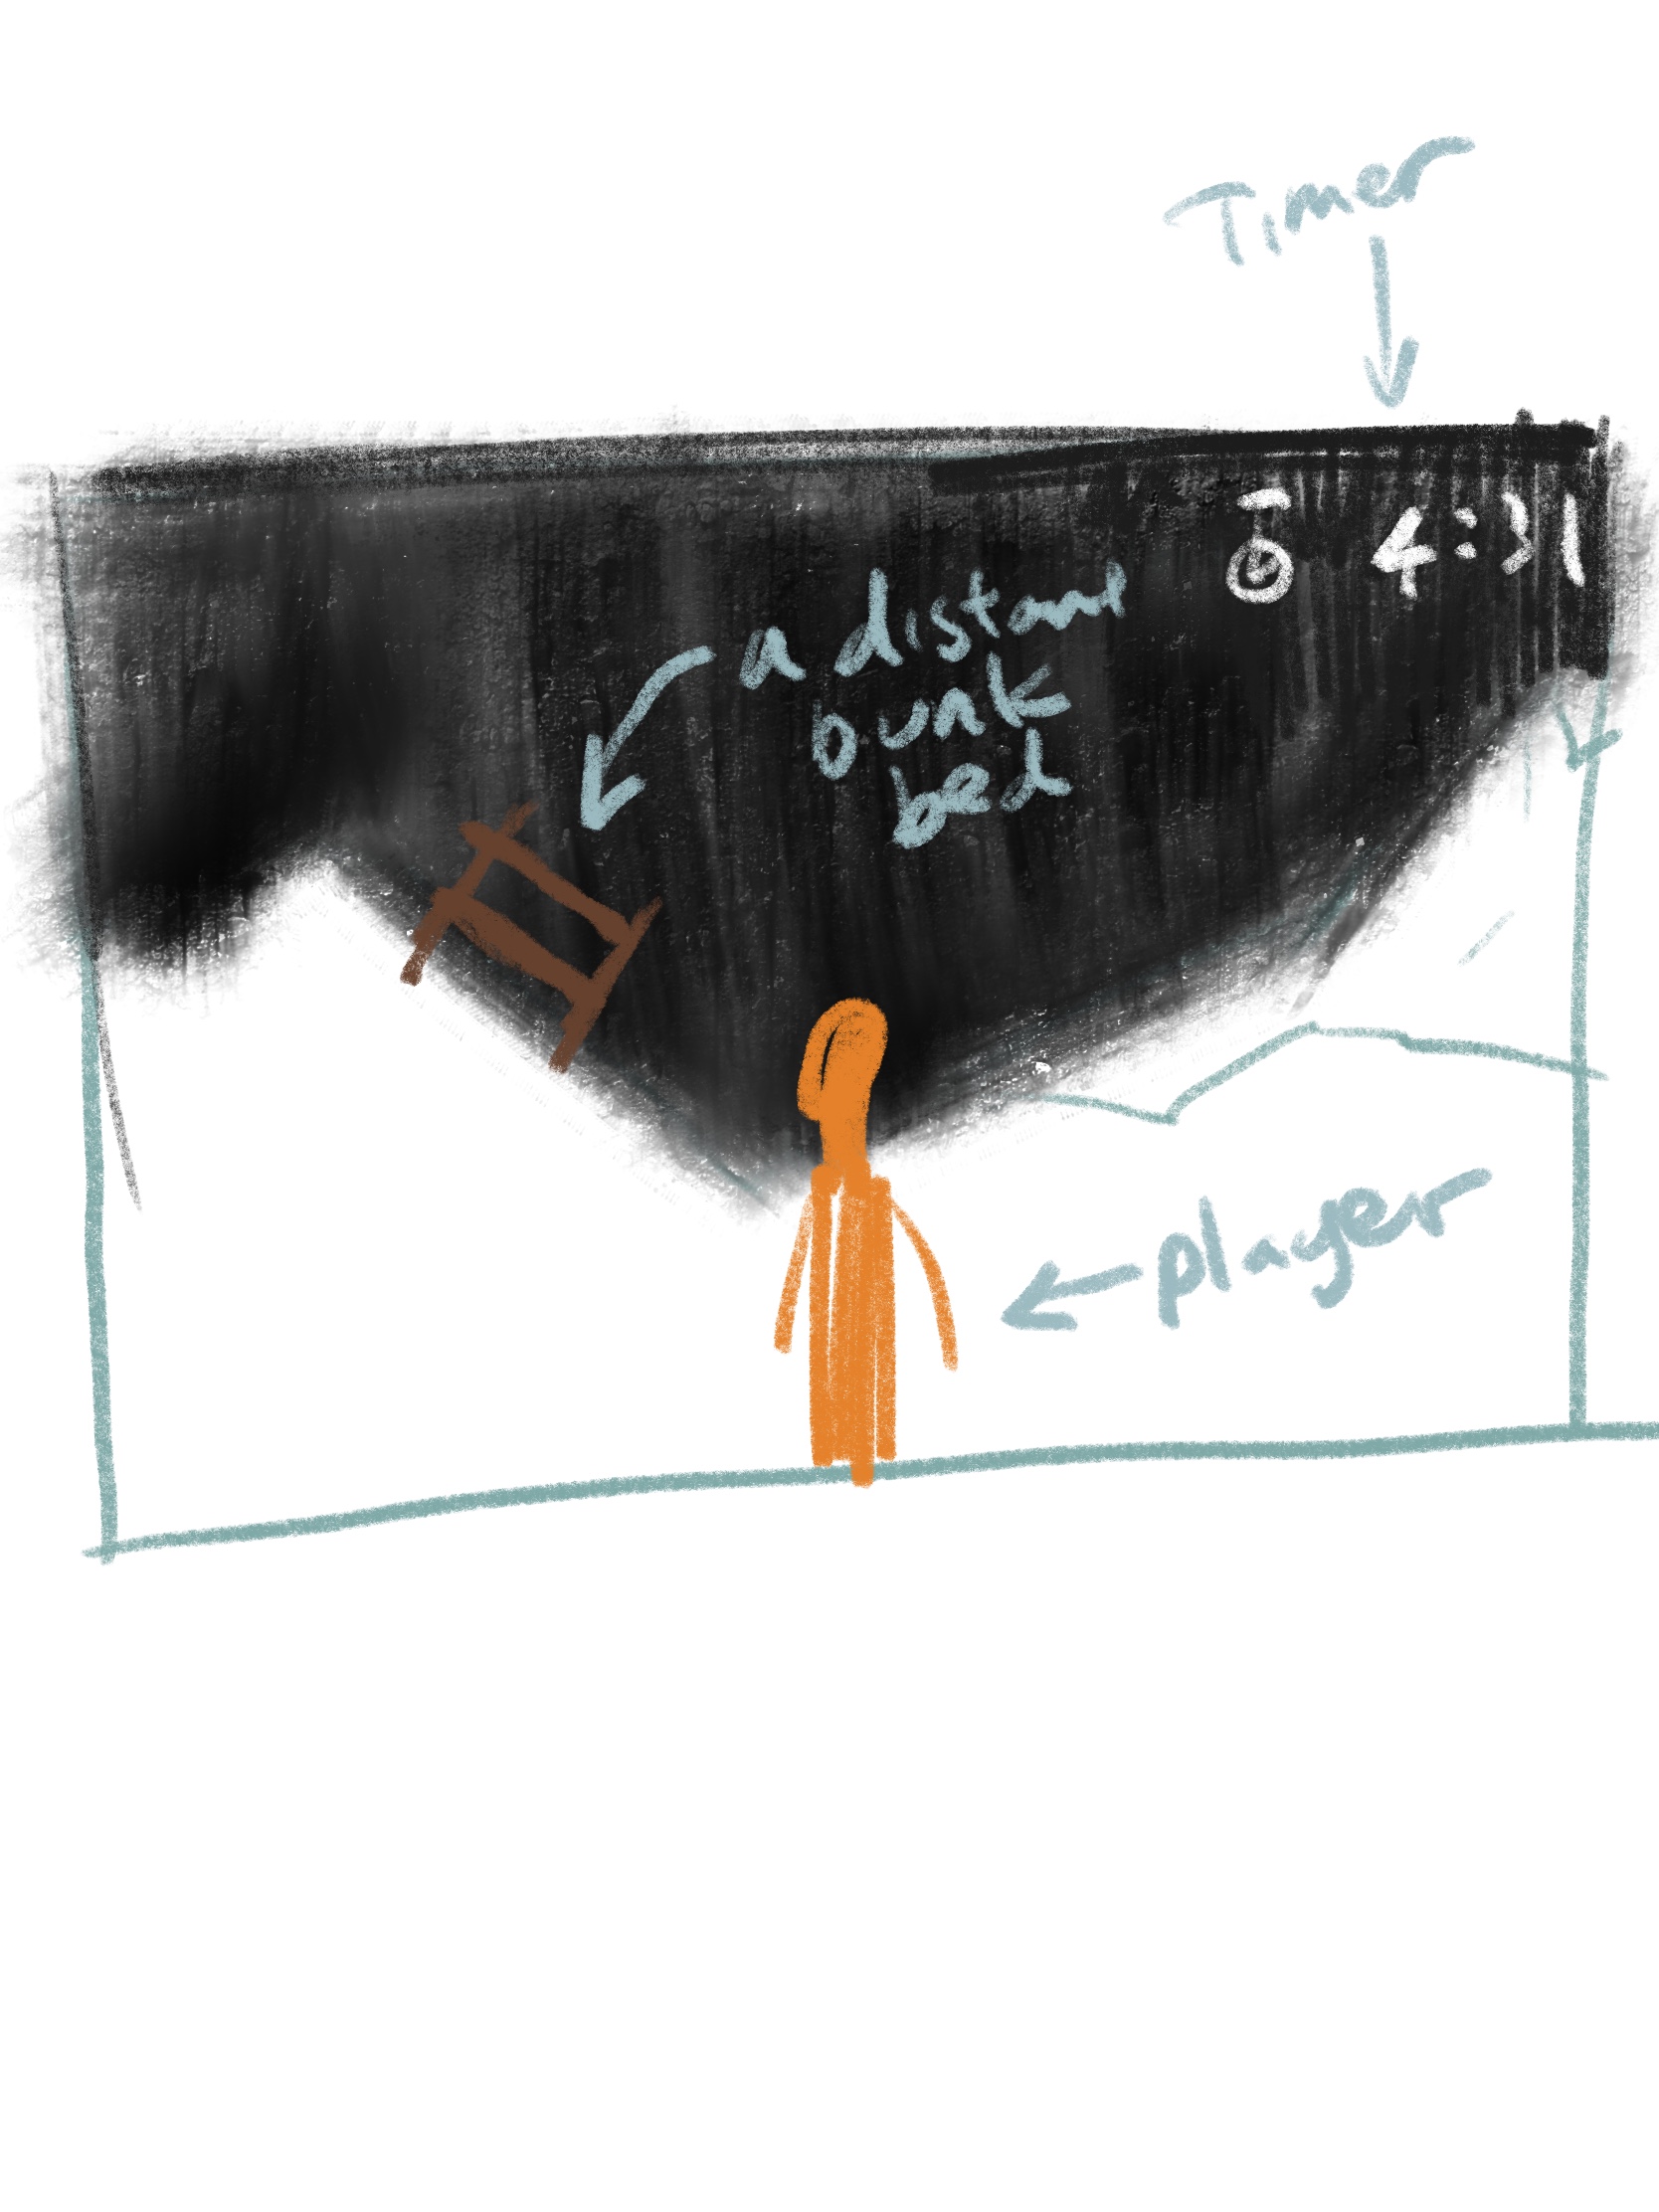 Timer
4:31
a distant
bunk
bed
player